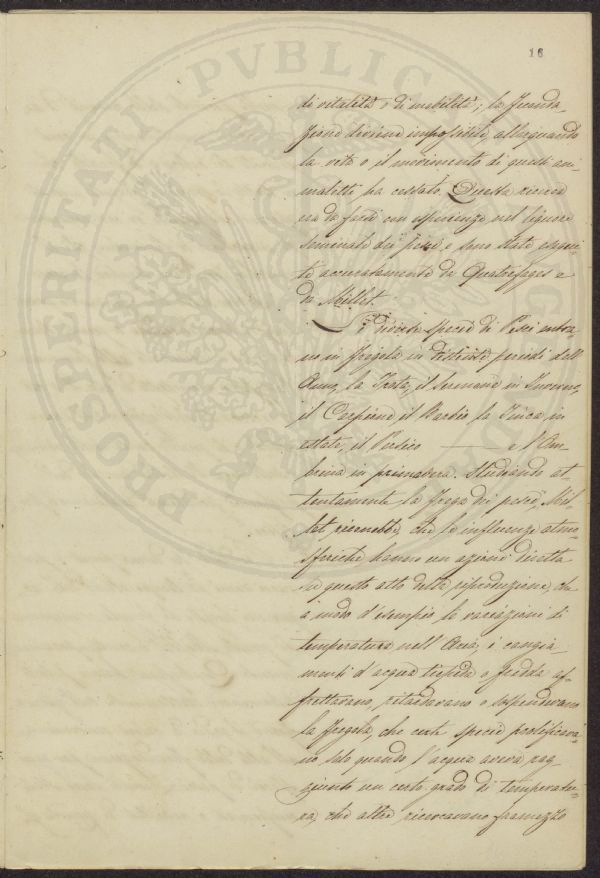 16
di vitalità o di mobilità; la feconda
zione diviene impossibile, allorquando
la vita o il movimento di questi ani-
maletti ha cessato. Questa ricerca
era da farsi con esperienze nel liquore
seminale dei pesci, e sono state
accuratamente da Quatrefages e
da Millet.
I diverse specie di Pesci entra-
no in fregola in distinti periodi dell'
Anno, la Trota, il Sermone in Inverno,
il Carpione, il Barbio la Tinca, in
estate, il Persico e l'Om-
brina in primavera. Studiando at-
tentamente la frega dei pesci, Mil-
let riconobbe, che le influenze atmo-
sferiche hanno un azione diretta
su questo atto della riproduzione, che
a modo d'esempio le variazioni di
temperatura nell'Aria, i cangia
menti d'acqua tiepida o fredda af-
frettavano, ritardavano o sospendevano
la fregola, che certe specie prolificava-
no solo quando l'acqua aveva rag
giunto un certo grado di temperatu-
ra, che altre ricercavano frammezzo
PROSPERITATI PVBLICAE